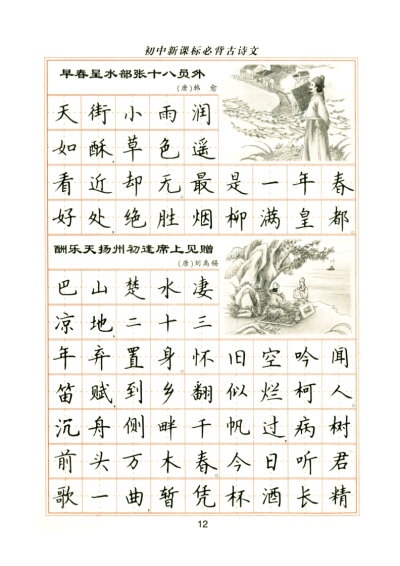 初中新课标必背古诗文
早春呈水部张十八员外
(唐)韩 愈
天街小雨润
如酥,草色遥
看近却无。最是一年春
好处,绝胜烟柳满皇都。
酬乐天扬州初逢席上见赠
(唐)刘禹锡
巴山楚水凄
凉地,二十三
年弃置身。怀旧空吟闻
笛赋,到乡翻似烂柯人。
沉舟侧畔千帆过,病树
前头万木春。今日听君
歌一曲,暂凭杯酒长精
12